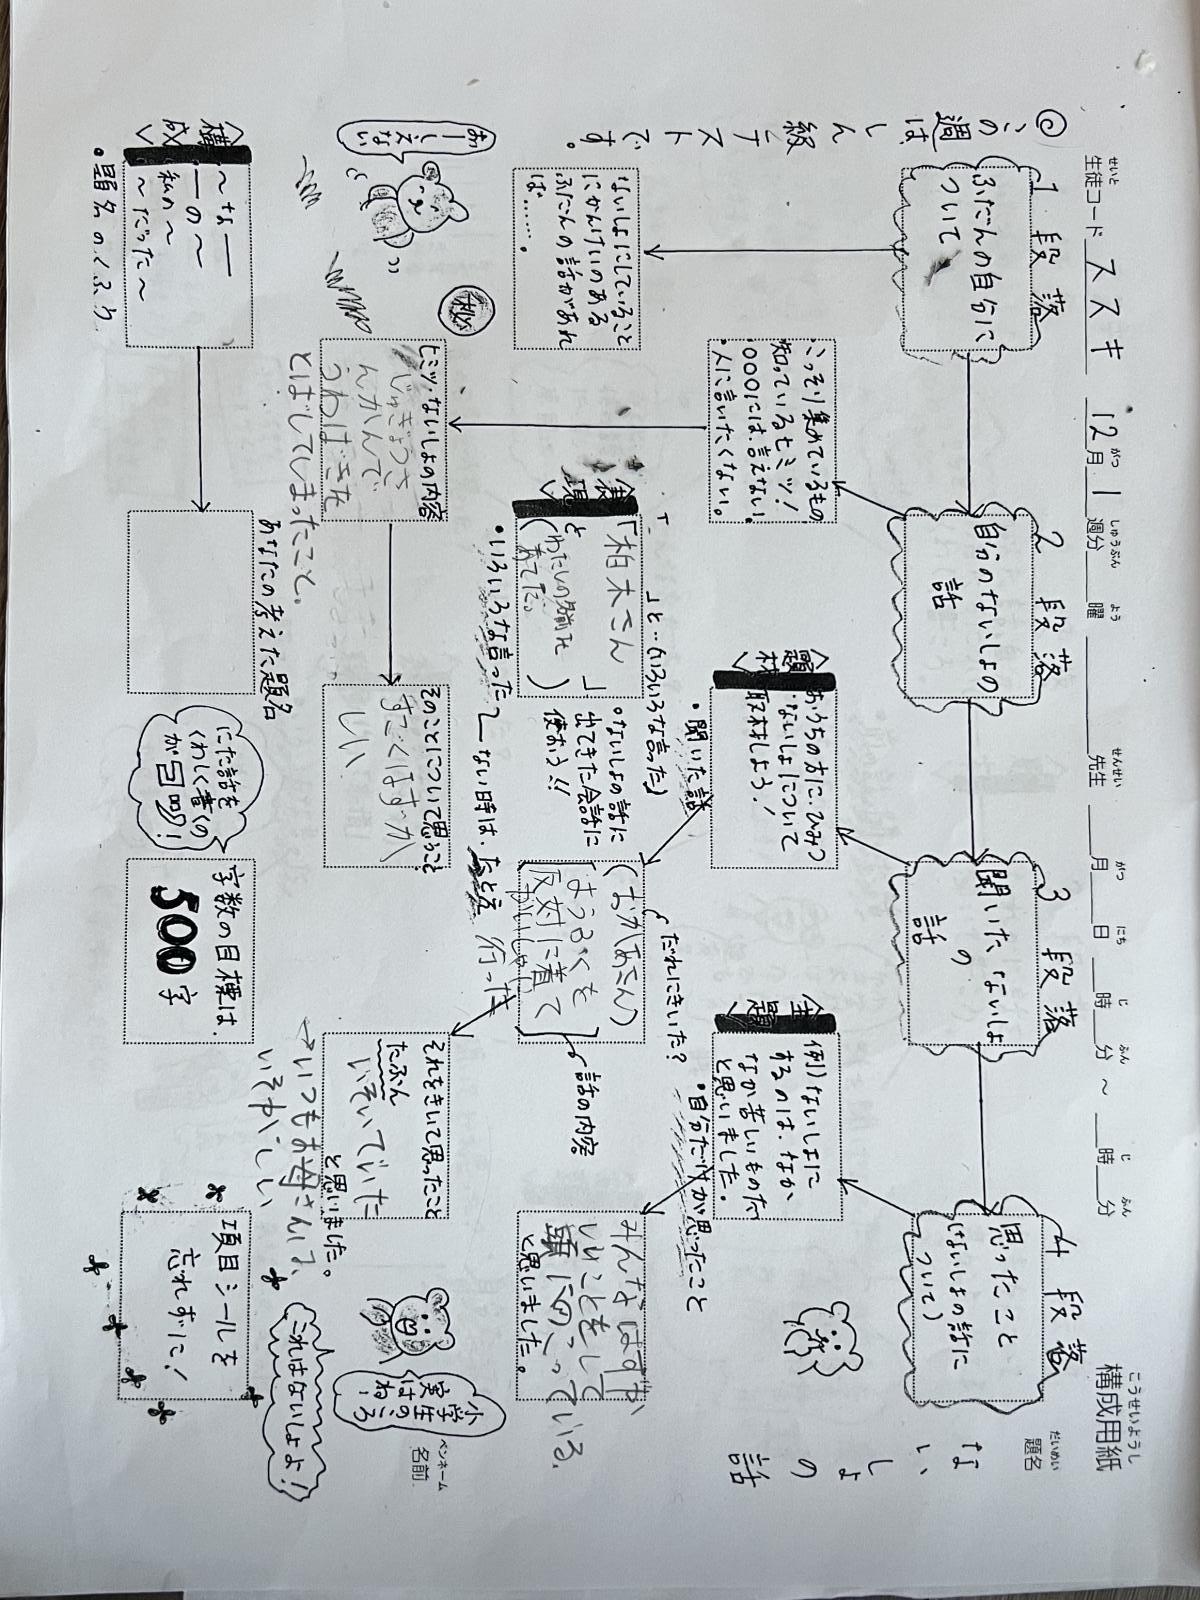 構成用紙
こうせいようし
題名
だいめい
ないしょの話
ペンネーム
名前
生徒コード
せいと
ススキ
12月1週分
がつ
しゅうぶん
曜
よう
先生
せんせい
月
がつ
日
にち
時
じ
分
ふん
～
時
じ
分
ふん
この週は
しん級テストです。
1段落
ふだんの自分に
ついて
ないしょにしていること
にかんけいのある
ふだんの話があれ
ば……。
2段落
自分のないしょの
話
こっそり集めているもの
知っているヒミツ!
○○○には、言えない。
・人に言いたくない。
ヒミツ・ないしょの内容
じゅぎょうさ
んかんで
うわばきを
とばしてしまったこと。
そのことについて思うこと
すごくはずか
しい
3段落
聞いたないしょ
の
話
〈題材〉
おうちの方に、ひみつ
・ないしょについて
取材しよう!
・聞いた話
だれにきいた?
(おかあさん)
ようふくを
反対に着て
かいしゃに
行った
話の内容
それをきいて思ったこと
たぶん
いそいでいた
と思いました。
→いつもお母さんは、
いそがしい
4段落
思ったこと
(ないしょの話に
ついて)
〈主題〉
例)ないしょに
するのは、なか
なか苦しいものだ
と思いました。
・自分だけが思ったこと
みんなはずか
しいことをして
頭にのこっている。
と思いました。
〈表現〉
「 」と…(いろいろな言った)
「柏木さん」
と
(わたしの名前を
あてた。)
・いろいろな言った
・ないしょの話に
出てきた会話に
使おう!!
ない時は、たとえ
〈構成〉
～な――
―の～
私の～
～だった～
・題名のくふう
あなたの考えた題名
にた話を
くわしく書くの
が
字数の目標は、
500字
項目シールを
忘れずに!
秘
小学生のころ
実はね…
これはないしょよ!